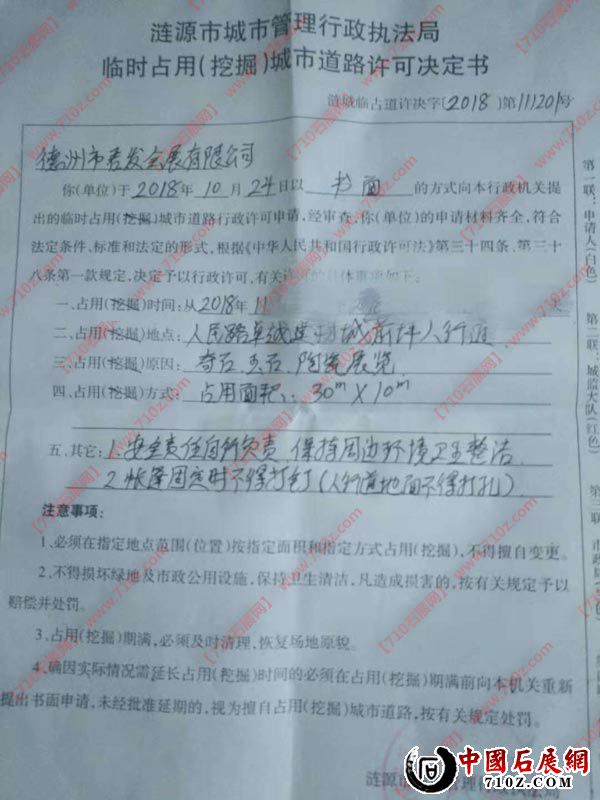 涟源市城市管理行政执法局
临时占用(挖掘)城市道路许可决定书
涟城临占道许决字〔2018〕第111201号
德州市秀发会展有限公司
你(单位)于2018年10月24日以 书面 的方式向本行政机关提
出的临时占用(挖掘)城市道路行政许可申请,经审查,你(单位)的申请材料齐全,符合
法定条件、标准和法定的形式,根据《中华人民共和国行政许可法》第三十四条、第三十
八条第一款规定,决定予以行政许可,有关许可的具体事项如下。
一、占用(挖掘)时间:从2018年11
二、占用(挖掘)地点:人民路卓越建材城前坪人行道
三、占用(挖掘)原因:奇石、玉石、陶瓷展览
四、占用(挖掘)方式:占用面积:30m×10m
五、其它:1.安全责任自行负责 保持周边环境卫生整洁
2.帐篷固定时不得打钉(人行道地面不得打孔)
注意事项:
1、必须在指定地点范围(位置)按指定面积和指定方式占用(挖掘),不得擅自变更。
2、不得损坏绿地及市政公用设施,保持卫生清洁,凡造成损害的,按有关规定予以
赔偿并处罚。
3、占用(挖掘)期满,必须及时清理,恢复场地原貌。
4、确因实际情况需延长占用(挖掘)时间的必须在占用(挖掘)期满前向本机关重新
提出书面申请,未经批准延期的,视为擅自占用(挖掘)城市道路,按有关规定处罚。
涟源市
管理
第一联:申请人(白色)
第二联:城监大队(红色)
第三联
【710石展网】www.710z.com
中国石展网
710Z.COM